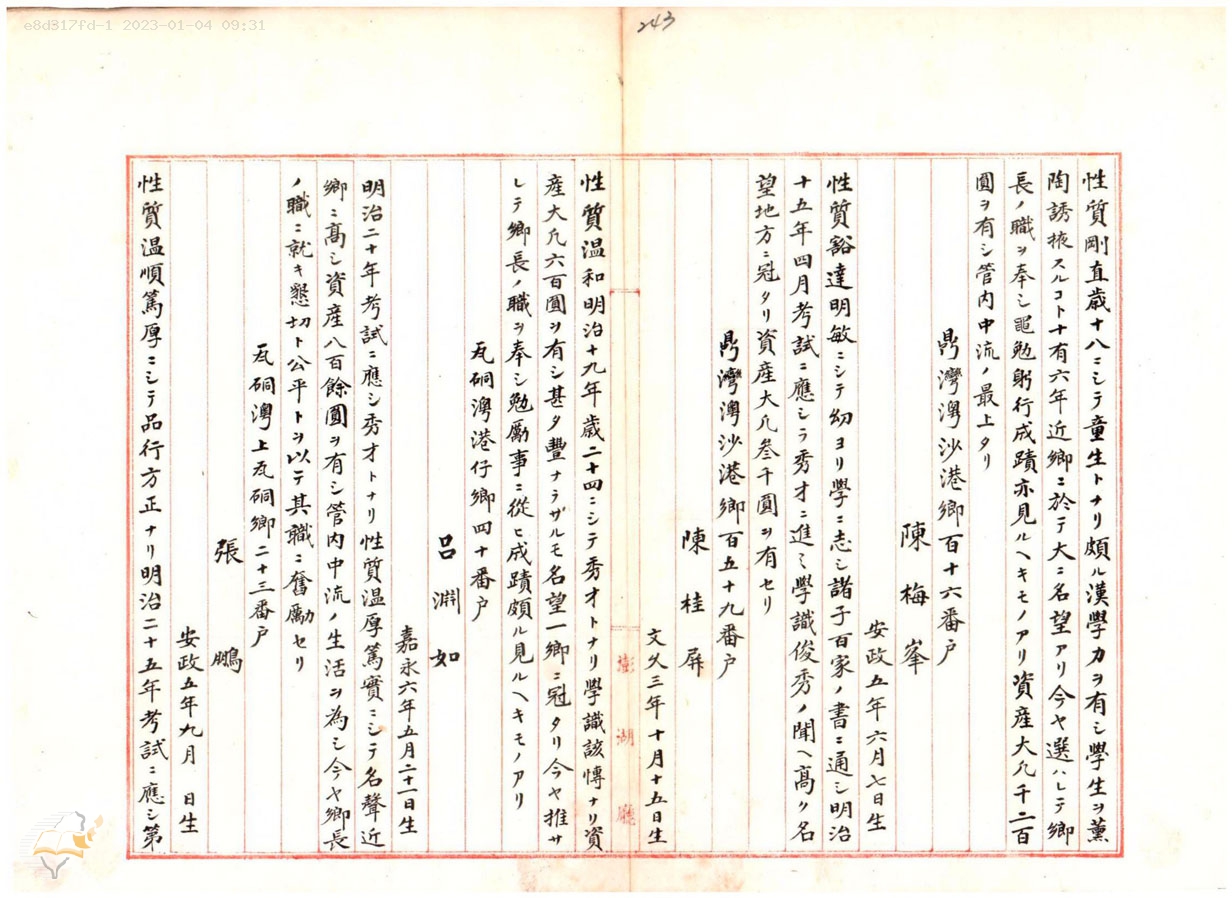 e8d317fd-1 2023-01-04 09:31
243
性質剛直歳十八ニシテ童生トナリ頗ル漢學力ヲ有シ學生ヲ薫
陶誘掖スルコト十有六年近鄉ニ於テ大ニ名望アリ今ヤ選ハレテ鄉
長ノ職ヲ奉シ黽勉躬行成蹟亦見ルヘキモノアリ資產大凡千二百
圓ヲ有シ管内中流ノ最上タリ
鼎灣澳沙港鄉百十六番户
陳梅峯
安政五年六月七日生
性質豁達明敏ニシテ幼ヨリ學ニ志シ諸子百家ノ書ニ通シ明治
十五年四月考試ニ應シテ秀才ニ進ミ學識俊秀ノ聞ヘ高ク名
望地方ニ冠タリ資産大凡叁千圓ヲ有セリ
鼎灣澳沙港鄉百五十九番户
陳桂屏
文久三年十月十五日生
澎湖廳
性質温和明治十九年歳二十四ニシテ秀才トナリ學識該愽ナリ資
産大凡六百圓ヲ有シ甚タ豐ナラザルモ名望一鄉ニ冠タリ今ヤ推サ
レテ鄉長ノ職ヲ奉シ勉勵事ニ從ヒ成蹟頗ル見ルヘキモノアリ
瓦硐澳港仔鄉四十番户
呂淵如
嘉永六年五月二十一日生
明治二十年考試ニ應シ秀才トナリ性質温厚篤實ニシテ名聲近
鄉ニ高シ資産八百餘圓ヲ有シ管内中流ノ生活ヲ為シ今ヤ鄉長
ノ職ニ就キ懇切ト公平トヲ以テ其職ニ奮勵セリ
瓦硐澳上瓦硐鄉二十三番户
張鵬
安政五年九月 日生
性質温順篤厚ニシテ品行方正ナリ明治二十五年考試ニ應シ第